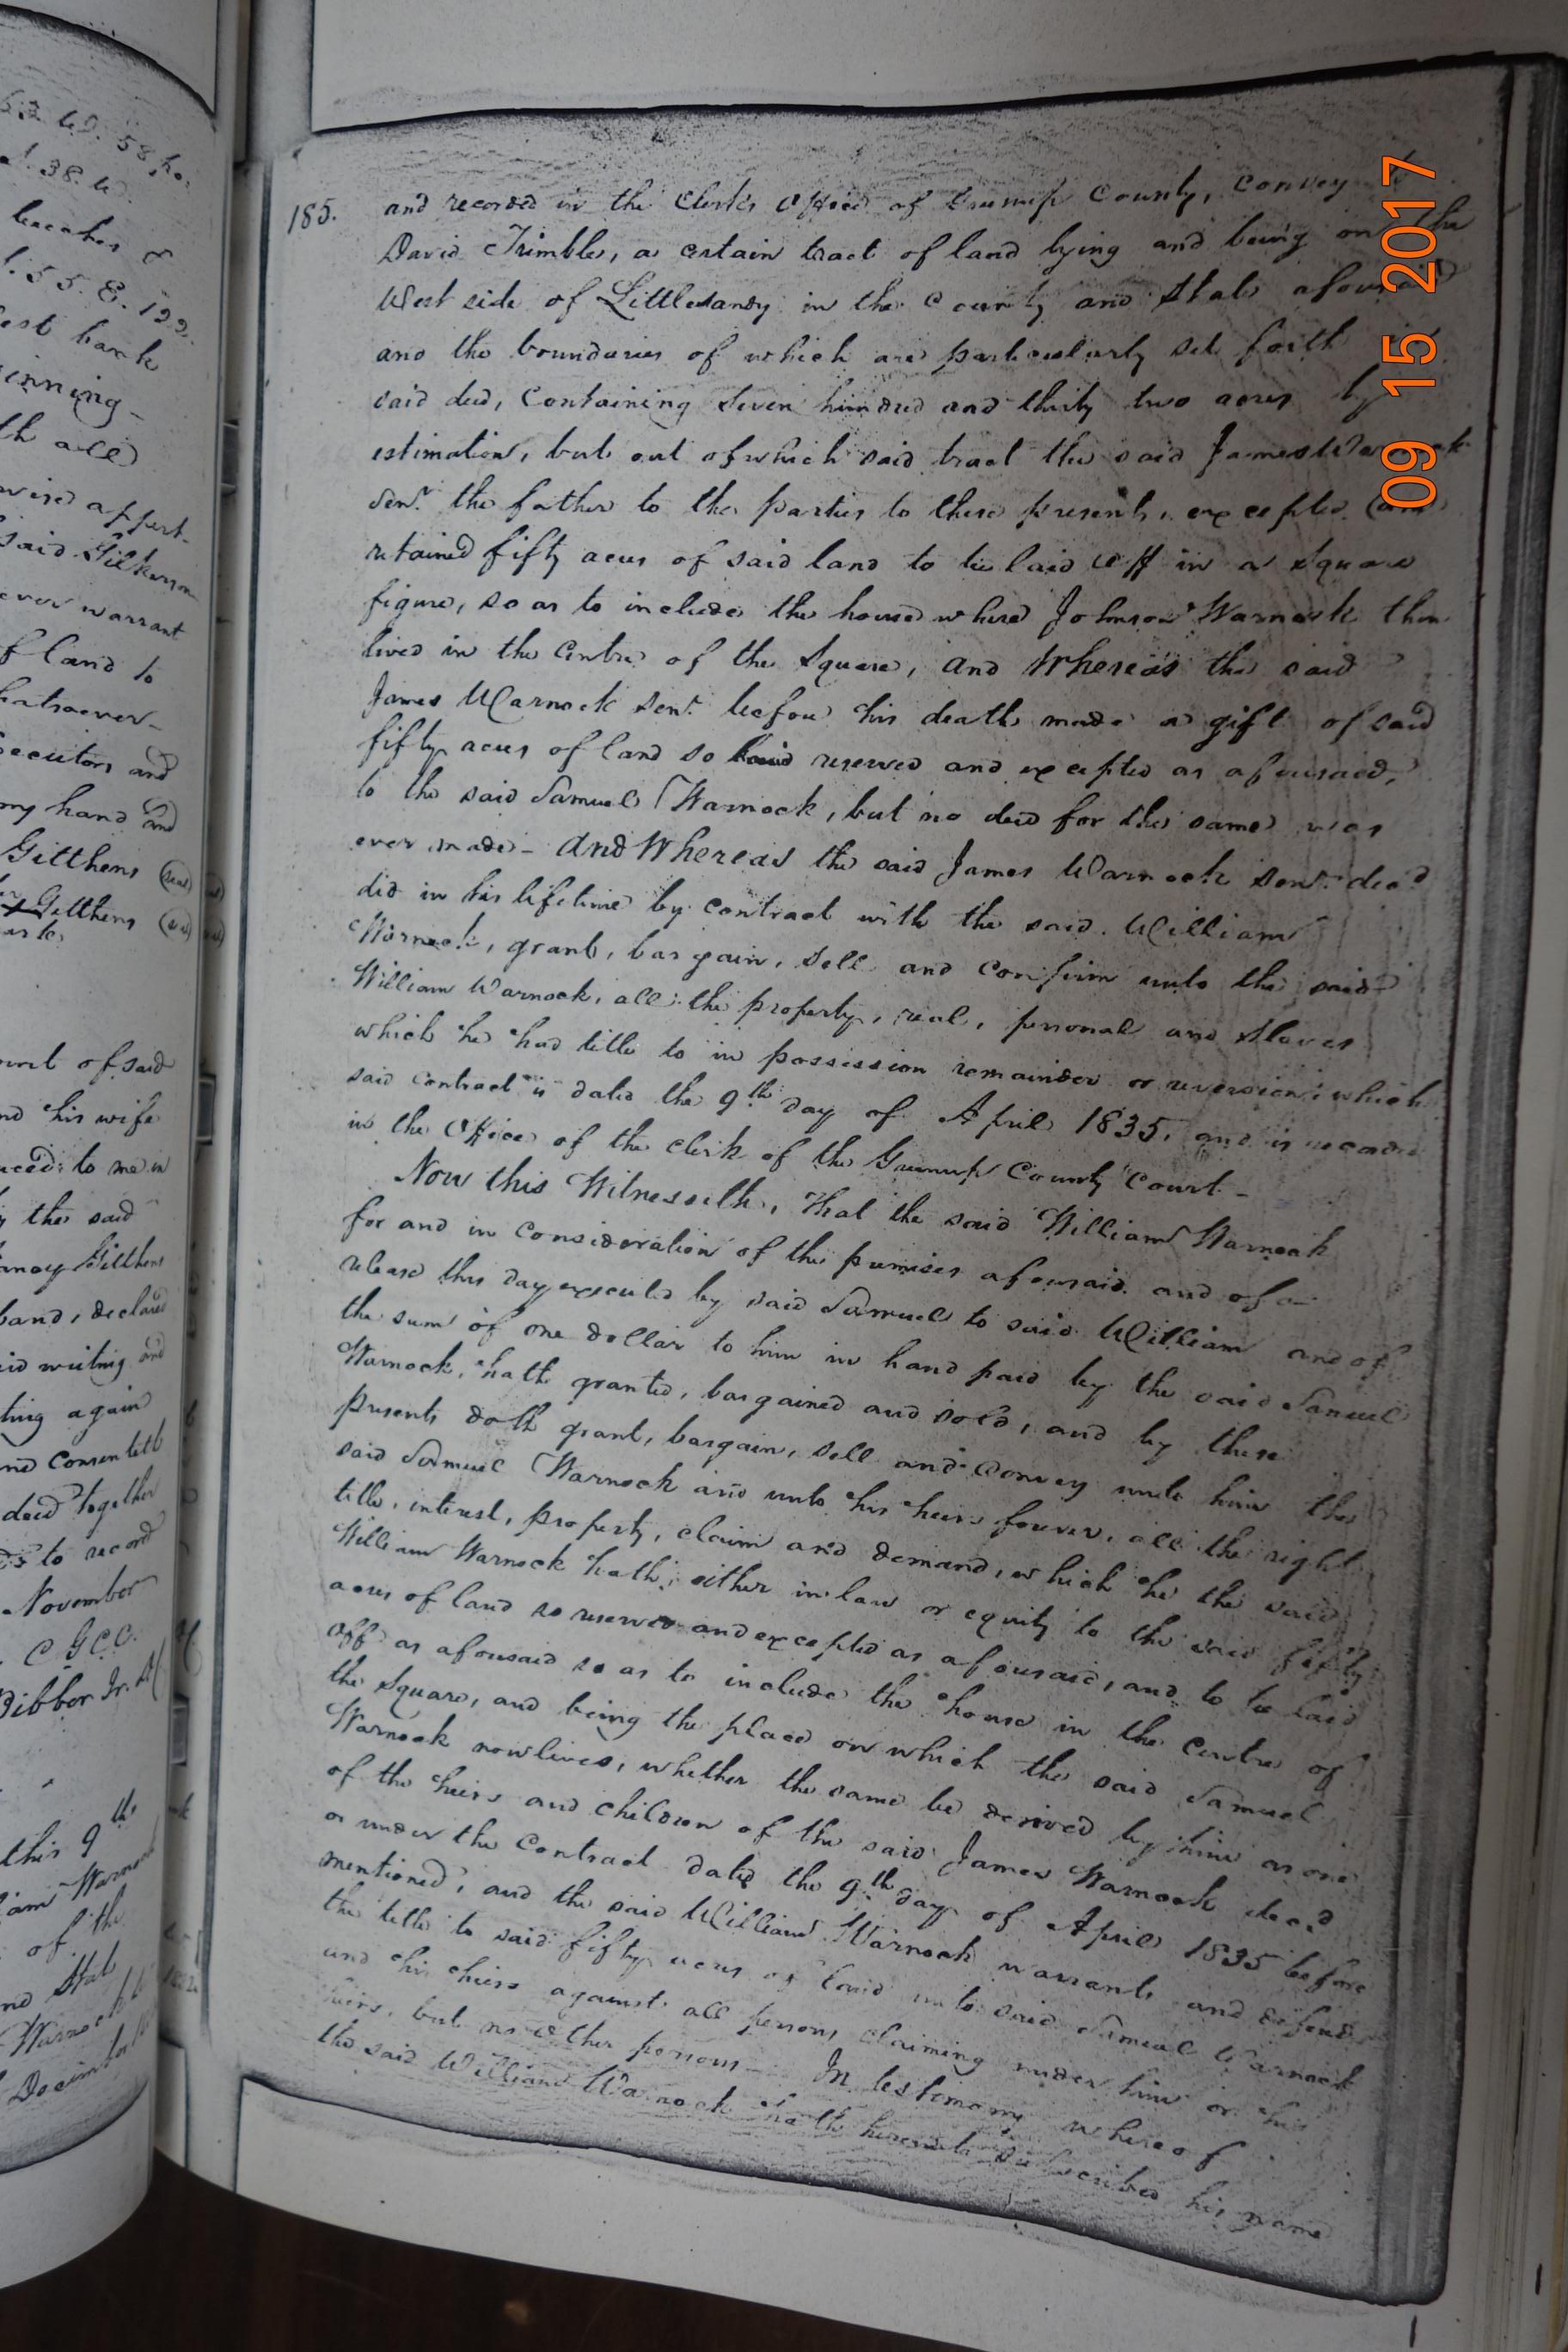 185.
and recorded in the Clerks Office of Greenup County, Convey
David Trimble, a certain tract of land lying and being on the
West side of Little Sandy in the County and State aforesaid
and the boundaries of which are particularly set forth
said deed, Containing Seven hundred and thirty two acres by
estimation, but out of which said tract the said James Warnock
Senr. the father to the parties to these presents, excepted (and
retained fifty acres of said land to be laid off in a Square
figure, so as to include the house where Johnson Warnock then
lived in the Centre of the Square, and Whereas the said
James Warnock Senr. before his death made a gift of said
fifty acres of land so reserved and excepted as aforesaid,
to the said Samuel Warnock, but no deed for the same was
ever made - And Whereas the said James Warnock Senr. decd
did in his lifetime by contract with the said William
Warnock, grant, bargain, sell and confirm unto the said
William Warnock, all the property, real, personal and Slaves
which he had title to in possession remainder or reversion which
said contract is dated the 9th day of April 1835, and is recorded
in the Office of the Clerk of the Greenup County Court -
Now this Witnesseth, that the said William Warnock
for and in Consideration of the premises aforesaid and of a
release this day executed by said Samuel to said William and of
the sum of one dollar to him in hand paid by the said Samuel
Warnock, hath granted, bargained and sold, and by these
presents doth grant, bargain, sell and Convey unto him the
said Samuel Warnock and unto his heirs forever, all the right
title, interest, property, claim and demand, which he the said
William Warnock hath, either in law or equity to the said fifty
acres of land so reserved and excepted as aforesaid, and to be laid
off as aforesaid so as to include the house in the Centre of
the Square, and being the place on which the said Samuel
Warnock now lives, whether the same be derived by him as one
of the heirs and children of the said James Warnock decd
or under the Contract dated the 9th day of April 1835 before
mentioned, and the said William Warnock warrants and defends
the title to said fifty acres of land unto said Samuel Warnock
and his heirs against all persons claiming under him or his
heirs, but no other persons - In testimony whereof
the said William Warnock hath hereunto subscribed his name
58 po.
38. W.
beeches &
55. E. 122.
bank
th all
said Gilkerson
ever warrant
of land to
whatsoever -
Executors and
my hand and
Gitthens (seal)
Gitthens (seal)
Court of said
and his wife
to me in
the said
Gitthens
declared
writing and
again
and Consenteth
deed together
to record
November
C. G. C. C.
this 9th
Warnock
of the
and State
Warnock
December
09 15 2017